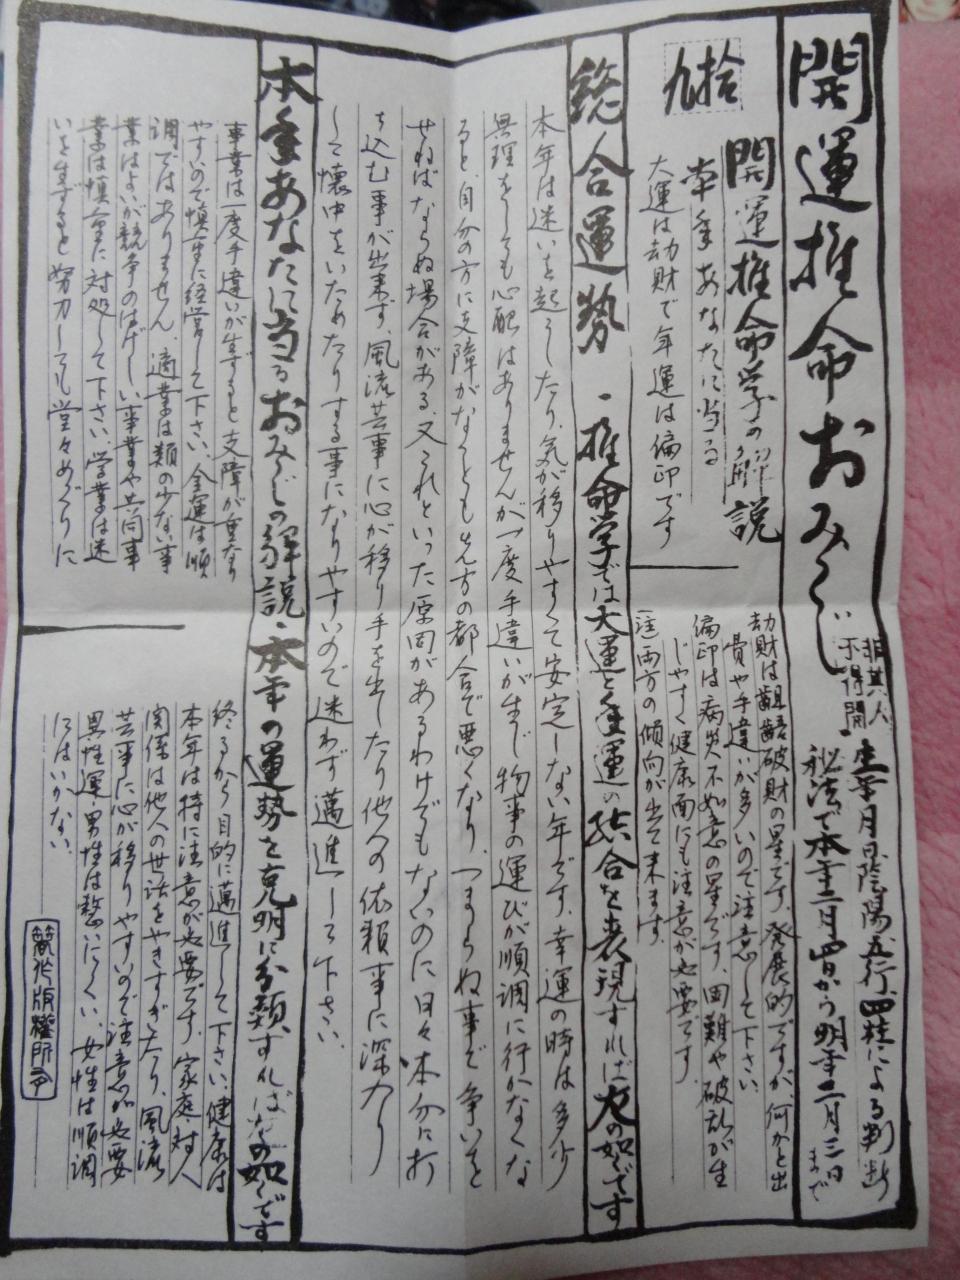 開運推命おみくじ
非其人
不得開
生年月日陰陽五行、四柱による判断
秘法で本年二月四日から明年二月三日まで
拾九
開運推命学の解説
本年あなたに当る
大運は劫財で年運は偏印です
劫財は齟齬破財の星です、発展的ですが、何かと出
費や手違いが多いので注意して下さい、
偏印は病災不如意の星です、困難や破乱が生
じやすく健康面にも注意が必要です、
(註)両方の傾向が出て来ます、
総合運勢・推命学では大運と年運の総合を表現すれば左の如です
本年は迷いを起したり、気が移りやすくて安定しない年です、幸運の時は多少
無理をしても心配はありませんが一度手違いが生じ物事の運びが順調に行かなくな
ると、自分の方に支障がなくとも先方の都合で悪くなり、つまらぬ事で争いを
せねばならぬ場合がある、又これといった原因があるわけでもないのに日々本分に打
ち込む事が出来ず、風流芸事に心が移り手を出したり他人の依頼事に深入り
して懐中をいためたりする事になりやすいので迷わず邁進して下さい、
本年あなたに当るおみくじの解説・本年の運勢を克明に分類すればな左の如です
事業は一度手違いが生ずると支障が重なり
やすいので慎重に経営して下さい、金運は順
調ではありません、適業は類の少ない事
業はよいが競争のはげしい事業や共同事
業は慎重に対処して下さい、学業は迷
いを生ずると努力しても堂々めぐりに
終るから目的に邁進して下さい、健康は
本年は特に注意が必要です、家庭・対人
関係は他人の世話をやきすぎたり、風流
芸事に心が移りやすいので注意が必要
異性運・男性は整いにくい、女性は順調
にはいかない、
版權所